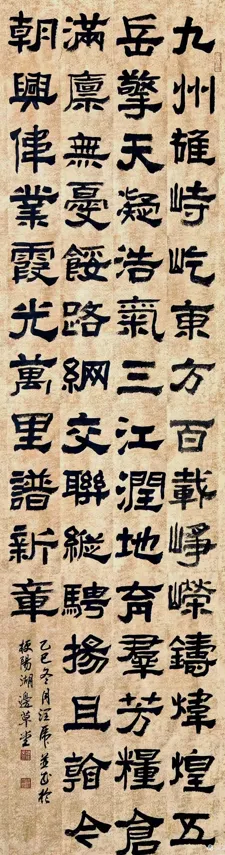 九州雄峙屹東方百載崢嶸鑄煒煌五
岳擎天凝浩氣三江潤地育羣芳糧倉
滿廩無憂餒路網交聯縱騁揚且看今
朝興偉業霞光萬里譜新章
乙巳冬月汪虎並書於
樅陽湖邊草堂